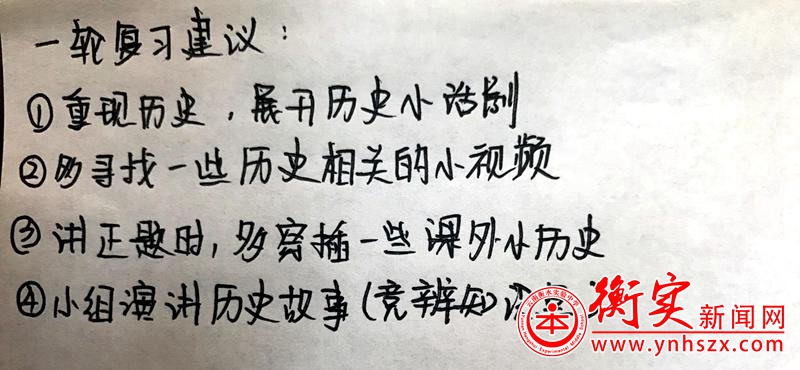 一轮复习建议：
①重现历史，展开历史小话剧
②多寻找一些历史相关的小视频
③讲正题时，多穿插一些课外小历史
④小组演讲历史故事(竞辨知
衡实新闻网
www.ynhszx.com
云南衡水实验中学